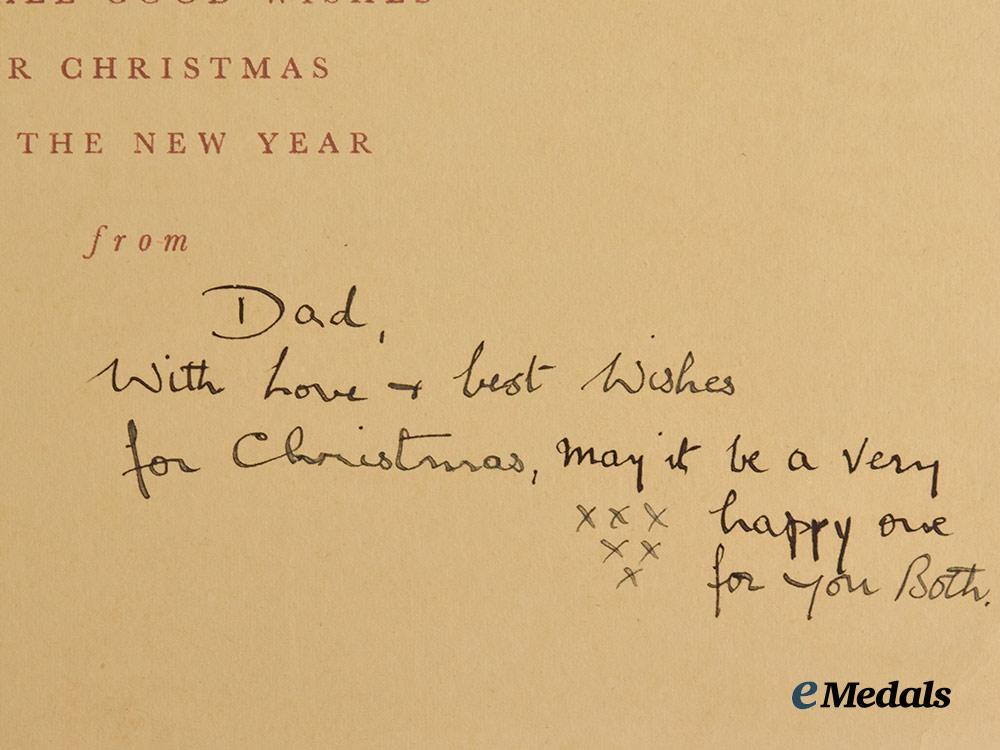 ALL GOOD WISHES
R CHRISTMAS
THE NEW YEAR
from
Dad,
With Love + best Wishes
for Christmas, may it be a very
x x x happy one
x x for you Both.
x
eMedals